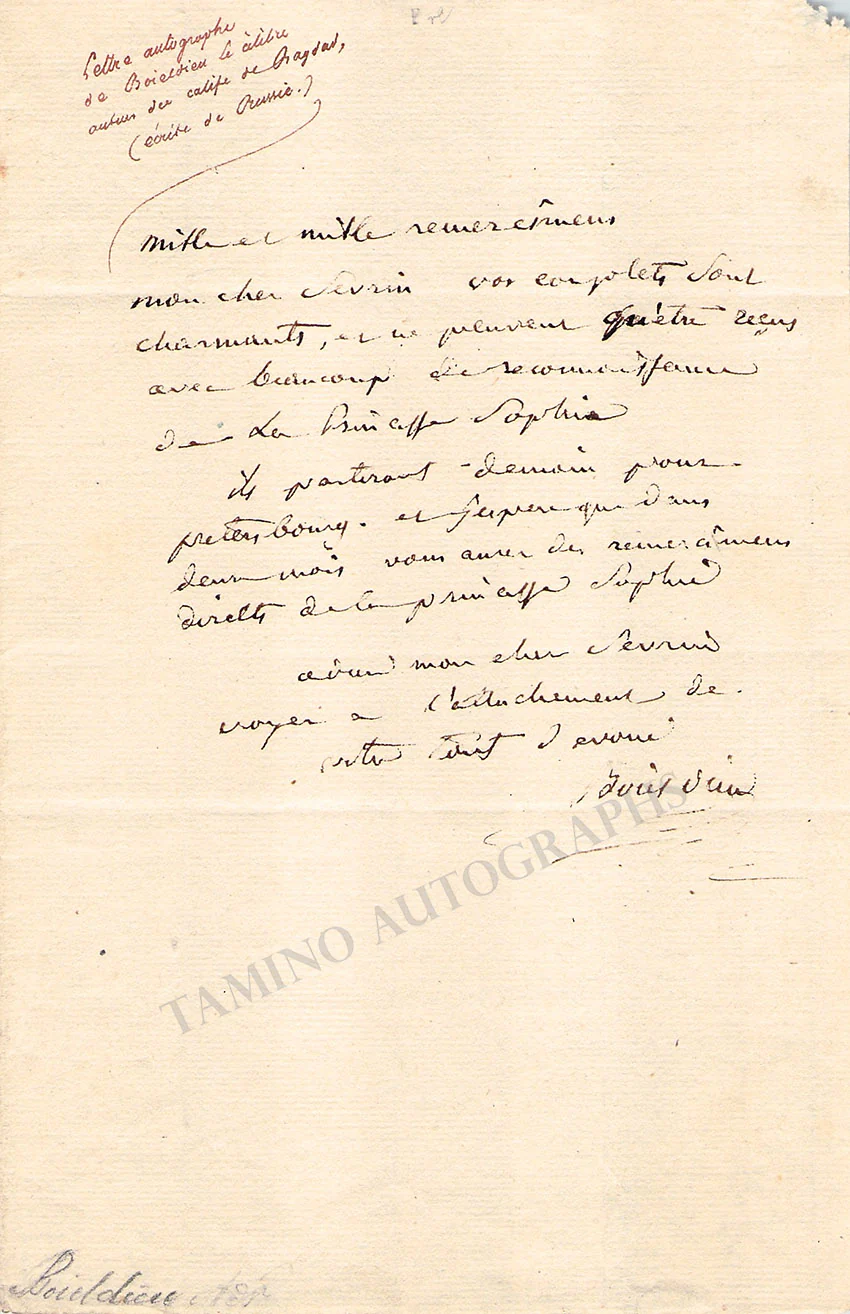 Lettre autographe
de Boieldieu le célèbre
auteur du calife de Bagdad,
(écrite de Russie.)
mille et mille remercîmens
mon cher Sevrin vos couplets sont
charmants, et ne peuvent qu'être reçus
avec beaucoup de reconnoissance
de La Princesse Sophie
ils partiront demain pour
petersbourg. et j'espere que dans
deux mois vous aurez des remercîmens
directs de la princesse Sophie
adieu mon cher Sevrin
croyez a l'attachement de
votre tout devoué
Boieldieu
TAMINO AUTOGRAPHS
Boieldieu